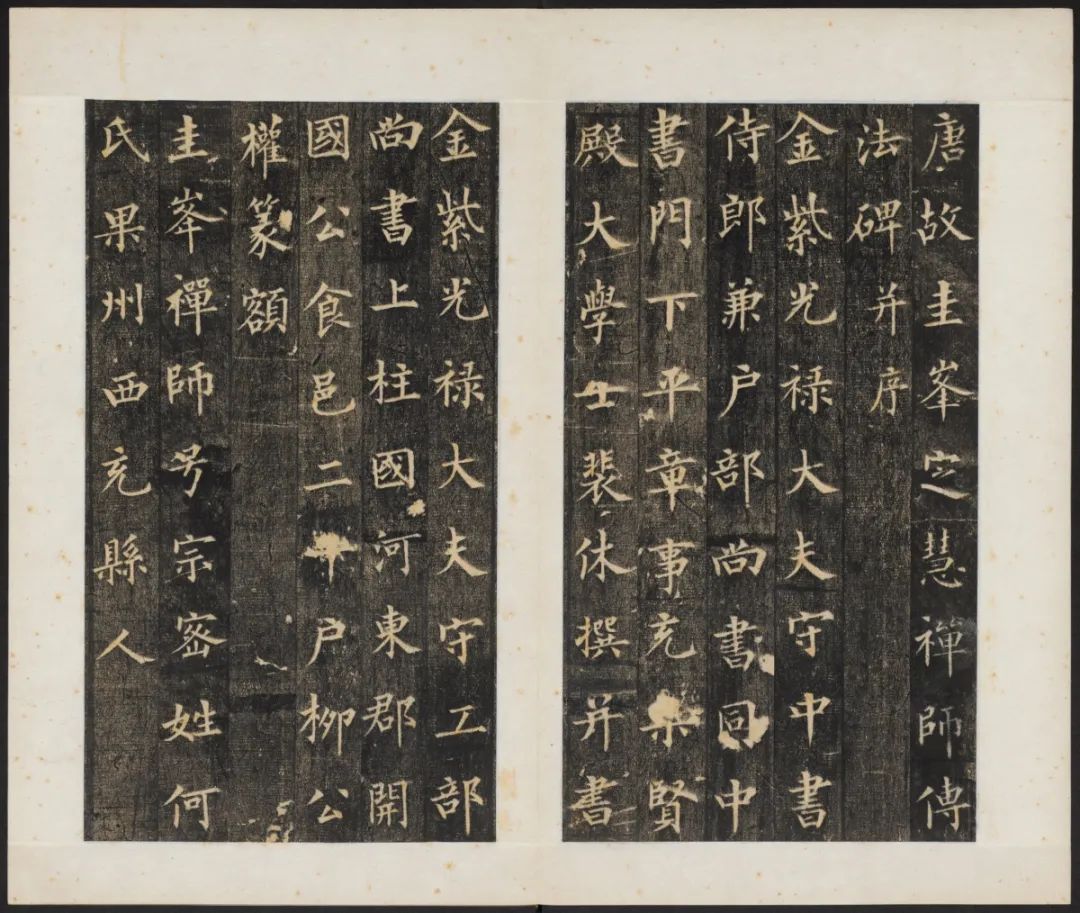 唐故圭峯㝎慧禪師傳
法碑并序
金紫光禄大夫守中書
侍郎兼户部尚書同中
書門下平章事充集賢
殿大學士裴休撰并書
金紫光禄大夫守工部
尚書上柱國河東郡開
國公食邑二千户柳公
權篆額
圭峯禪師号宗密姓何
氏果州西充縣人